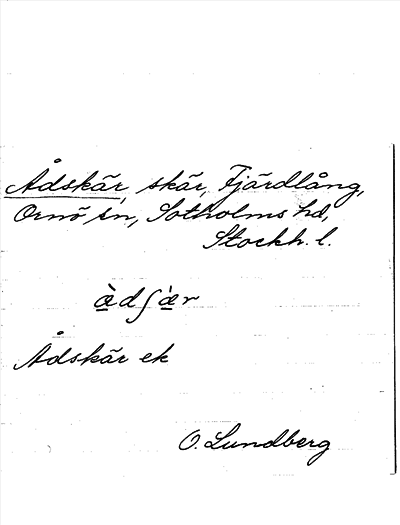 Ådskär, skär, Fjärdlång,
Ornö sn, Sotholms hd,
Stockh. l.
àdʃàr
Ådskär ek
O. Lundberg